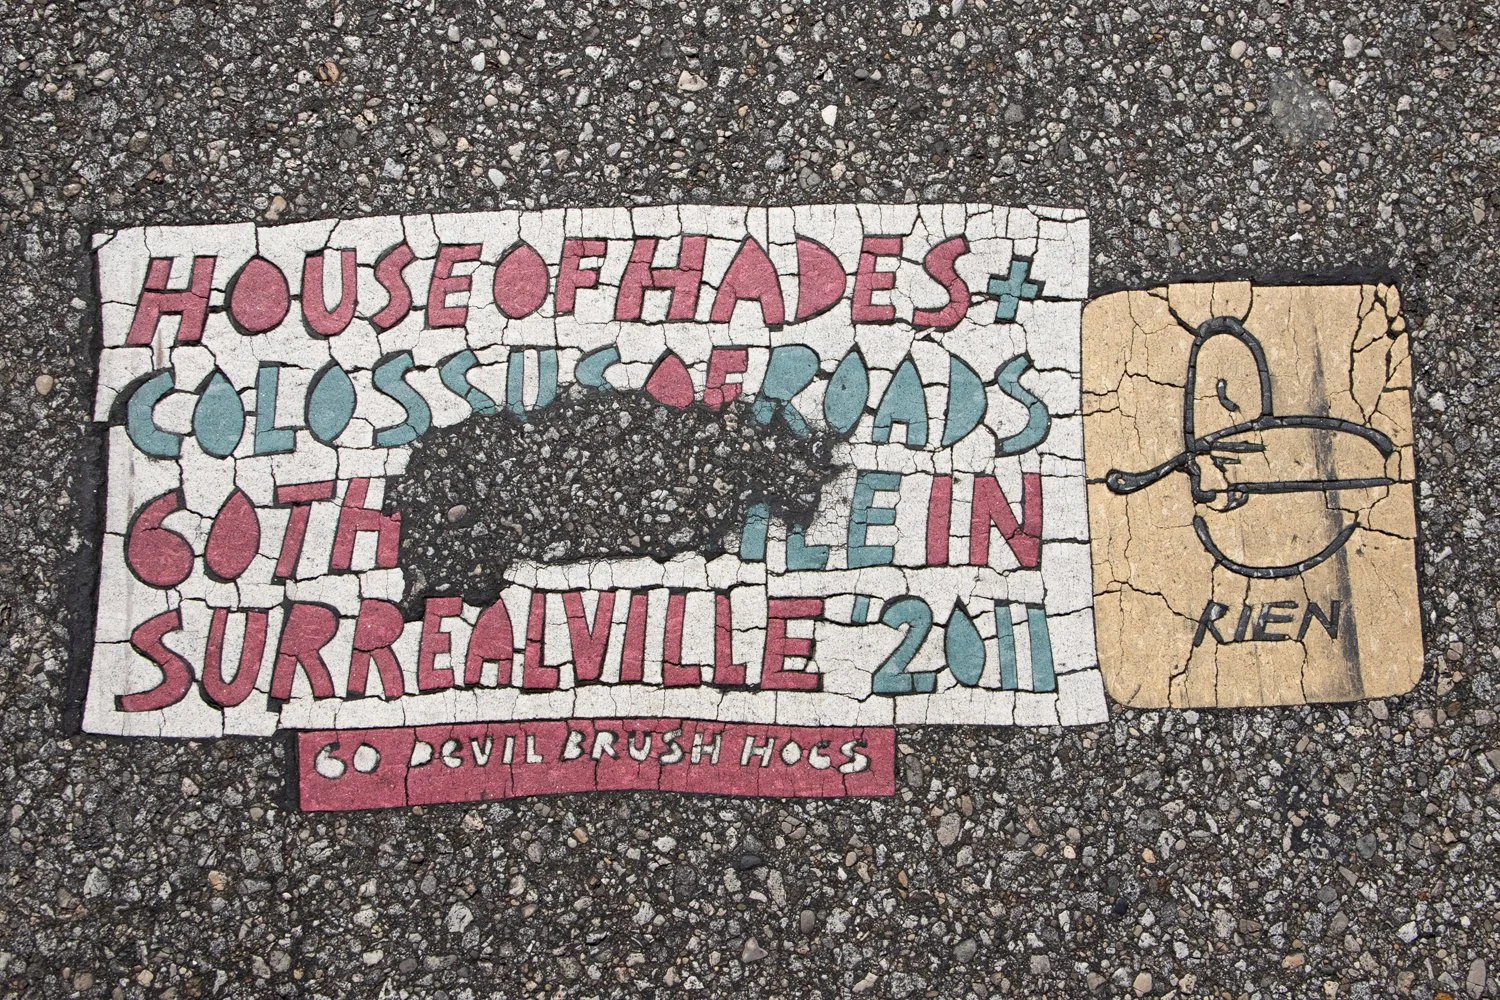 HOUSE OF HADES +
COLOSSUS OF ROADS
60TH IN
SURREALVILLE '2011
GO DEVIL BRUSH HOGS
RIEN